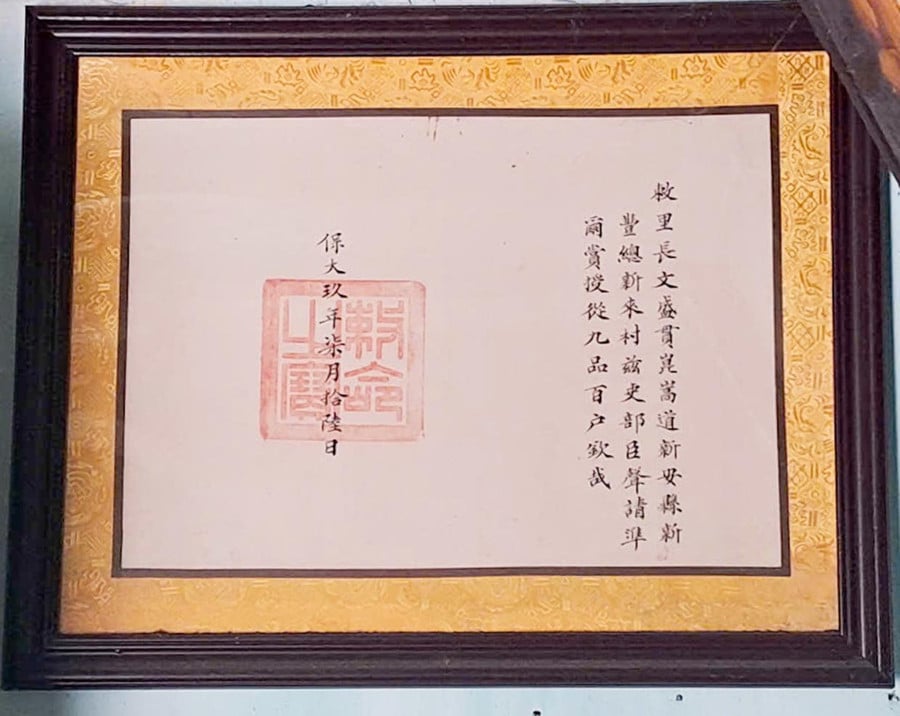 敕里長文盛貫崑嵩道新安縣新
豐總新來村兹吏部臣聲請準
爾賞授從九品百户欽哉
保大玖年柒月拾陸日
敕命之寶